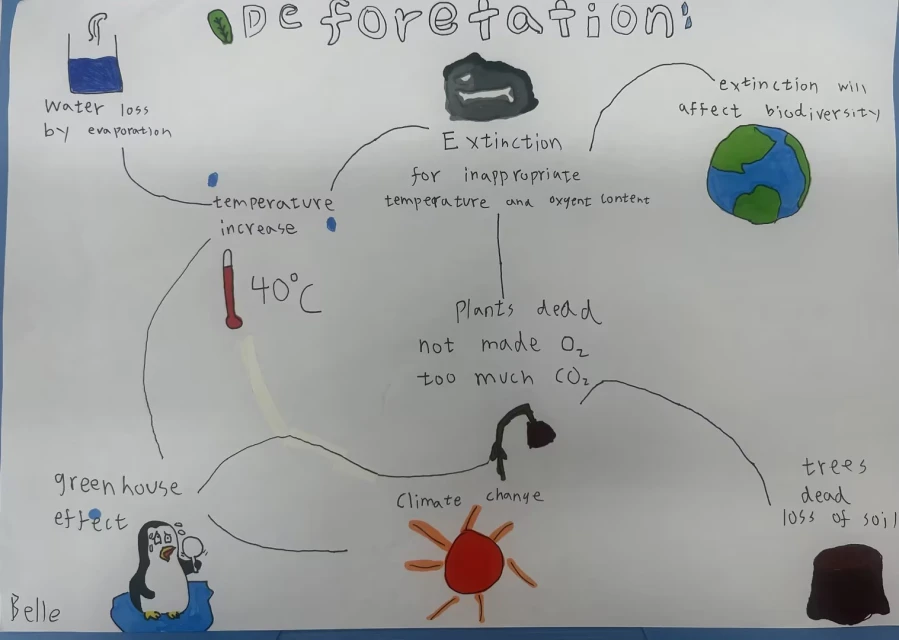 Deforetation:
Water loss
by evaporation
temperature
increase
40°C
Extinction
for inappropriate
temperature and oxygent content
extinction will
affect biodiversity
Plants dead
not made O₂
too much CO₂
greenhouse
effect
Climate change
trees
dead
loss of soil
Belle